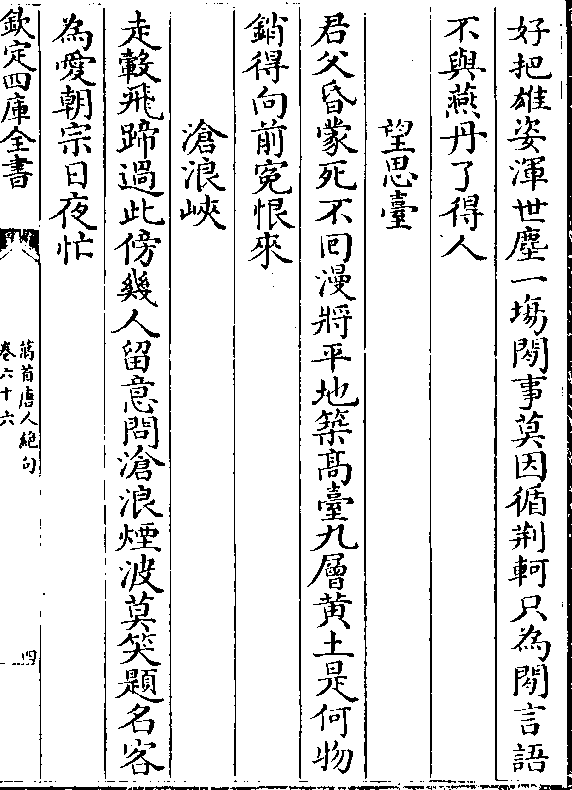 好把雄姿渾世塵一塲閑事莫因循荆軻只為閑言語
不與燕丹了得人
望思臺
君父昏蒙死不回漫將平地築髙臺九層黄土是何物
銷得向前寃恨來
滄浪峽
走轂飛蹄過此傍幾人留意問滄浪煙波莫笑題名客
為愛朝宗日夜忙
欽定四庫全書
萬首唐人絶句
卷六十六
四